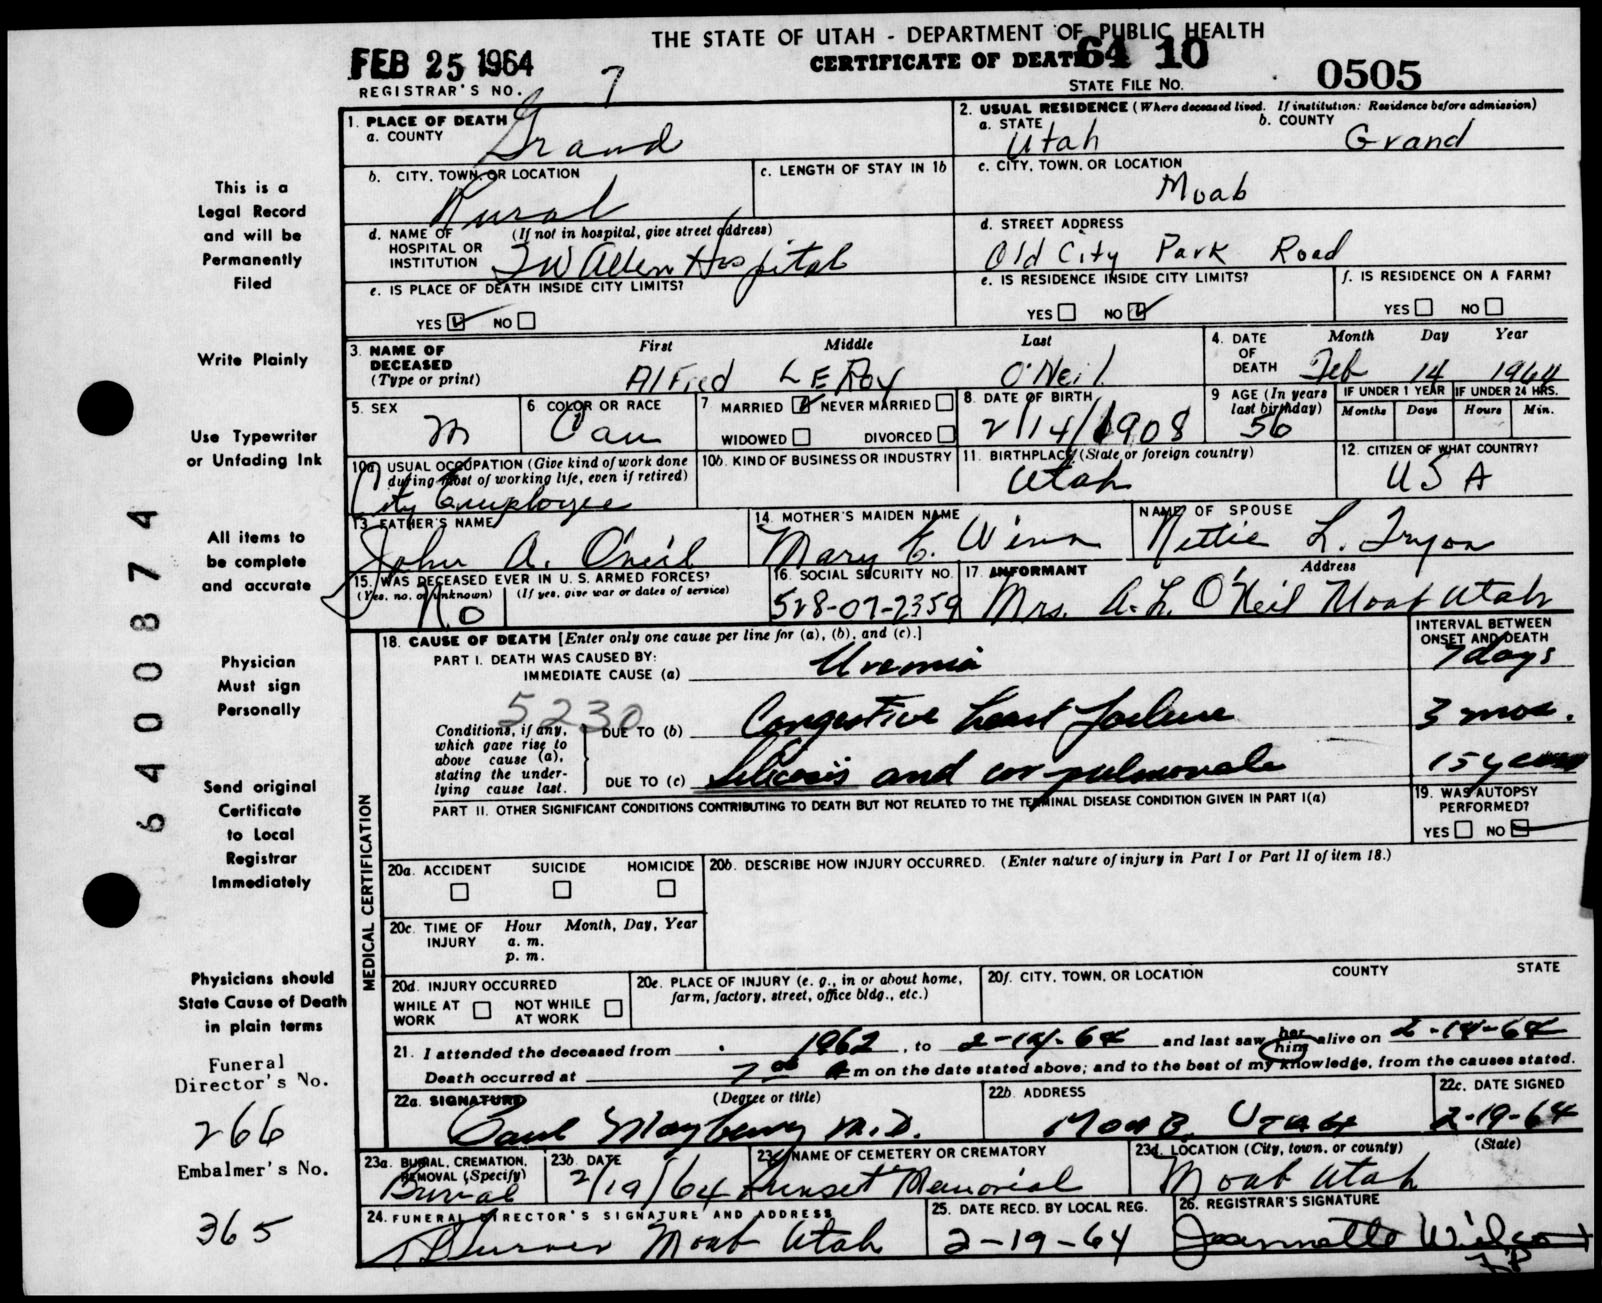 THE STATE OF UTAH - DEPARTMENT OF PUBLIC HEALTH
FEB 25 1964
CERTIFICATE OF DEATH 64 10
REGISTRAR'S NO. 7
STATE FILE NO. 0505
1. PLACE OF DEATH
a. COUNTY Grand
2. USUAL RESIDENCE (Where deceased lived. If institution: Residence before admission)
a. STATE Utah b. COUNTY Grand
b. CITY, TOWN, OR LOCATION Rural
c. LENGTH OF STAY IN 1b
c. CITY, TOWN, OR LOCATION Moab
d. NAME OF HOSPITAL OR INSTITUTION (If not in hospital, give street address) Allen Hospital
d. STREET ADDRESS Old City Park Road
e. IS PLACE OF DEATH INSIDE CITY LIMITS?
YES ☑ NO ☐
e. IS RESIDENCE INSIDE CITY LIMITS?
YES ☐ NO ☑
f. IS RESIDENCE ON A FARM?
YES ☐ NO ☐
3. NAME OF DECEASED (Type or print)
First Middle Last
Alfred LERoy O'Neil
4. DATE OF DEATH
Month Day Year
Feb 14 1964
5. SEX M
6 COLOR OR RACE Cau
7 MARRIED ☑ NEVER MARRIED ☐
WIDOWED ☐ DIVORCED ☐
8. DATE OF BIRTH 2/14/1908
9 AGE (In years last birthday) 56
IF UNDER 1 YEAR IF UNDER 24 HRS.
Months Days Hours Min.
10a. USUAL OCCUPATION (Give kind of work done during most of working life, even if retired)
City Employee
10b. KIND OF BUSINESS OR INDUSTRY
11. BIRTHPLACE (State or foreign country) Utah
12. CITIZEN OF WHAT COUNTRY? USA
13. FATHER'S NAME John A. O'neil
14. MOTHER'S MAIDEN NAME Mary E. Winn
NAME OF SPOUSE Nettie L. Tryon
15. WAS DECEASED EVER IN U. S. ARMED FORCES?
(Yes, no, or unknown) (If yes, give war or dates of service)
No
16. SOCIAL SECURITY NO. 528-07-2359
17. INFORMANT Address
Mrs. A. L. O'Neil Moab Utah
18. CAUSE OF DEATH [Enter only one cause per line for (a), (b), and (c).]
INTERVAL BETWEEN ONSET AND DEATH
PART I. DEATH WAS CAUSED BY:
IMMEDIATE CAUSE (a) Uremia 7 days
5230
Conditions, if any, which gave rise to above cause (a), stating the underlying cause last.
DUE TO (b) Congestive heart failure 3 mos.
DUE TO (c) Silicosis and cor pulmonale 15 years
PART II. OTHER SIGNIFICANT CONDITIONS CONTRIBUTING TO DEATH BUT NOT RELATED TO THE TERMINAL DISEASE CONDITION GIVEN IN PART I(a)
19. WAS AUTOPSY PERFORMED?
YES ☐ NO ☑
MEDICAL CERTIFICATION
20a. ACCIDENT SUICIDE HOMICIDE
☐ ☐ ☐
20b. DESCRIBE HOW INJURY OCCURRED. (Enter nature of injury in Part I or Part II of item 18.)
20c. TIME OF INJURY Hour Month, Day, Year
a. m.
p. m.
20d. INJURY OCCURRED
WHILE AT WORK ☐ NOT WHILE AT WORK ☐
20e. PLACE OF INJURY (e. g., in or about home, farm, factory, street, office bldg., etc.)
20f. CITY, TOWN, OR LOCATION COUNTY STATE
21. I attended the deceased from 1962, to 2-14-64 and last saw her him alive on 2-14-64
Death occurred at 7 00 A m on the date stated above; and to the best of my knowledge, from the causes stated.
22a. SIGNATURE (Degree or title)
Paul Mayberry M.D.
22b. ADDRESS Moab, Utah
22c. DATE SIGNED 2-19-64
23a. BURIAL, CREMATION, REMOVAL (Specify) Burial
23b. DATE 2/19/64
23c. NAME OF CEMETERY OR CREMATORY Sunset Memorial
23d. LOCATION (City, town, or county) (State)
Moab Utah
24. FUNERAL DIRECTOR'S SIGNATURE AND ADDRESS
Moab Utah
25. DATE RECD. BY LOCAL REG. 2-19-64
26. REGISTRAR'S SIGNATURE
Jeannette Wilcox
This is a
Legal Record
and will be
Permanently
Filed
Write Plainly
Use Typewriter
or Unfading Ink
All items to
be complete
and accurate
Physician
Must sign
Personally
Send original
Certificate
to Local
Registrar
Immediately
Physicians should
State Cause of Death
in plain terms
Funeral
Director's No.
266
Embalmer's No.
365
6400874